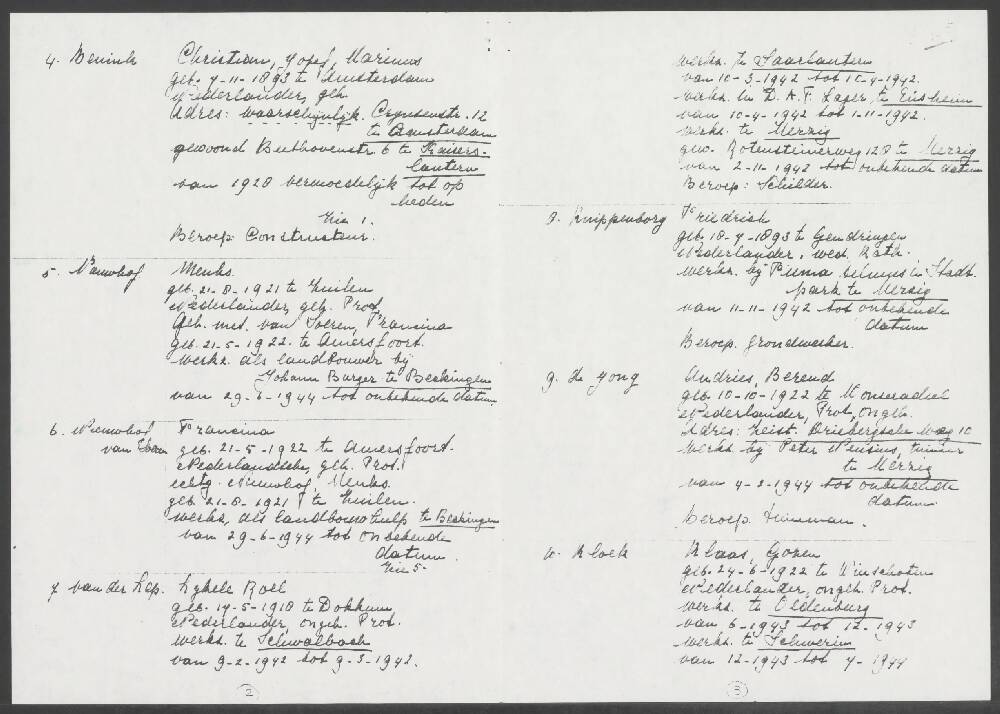 4. Benink Christiaan, Josef, Marinus
geb. 7-11-1893 te Amsterdam
Nederlander, geh.
Adres: waarschijnlijk 12
te Amsterdam
gewoond Beethovenstr. 6 te Kaisers-
lautern
van 1928 vermoedelijk tot op
heden
Zie 1.
Beroep: Constructeur.
5. Nieuwhof Menks.
geb. 21-8-1921 te Zuilen
Nederlander, geh. Prot.
Geh. met. van Soeren, Francina
geb. 21-5-1922 te Amersfoort.
werkz. als landbouwer bij
Johann Burger te Beckingen
van 29-6-1944 tot onbekende datum
6. Nieuwhof Francina
van Soeren geb. 21-5-1922 te Amersfoort.
Nederlandsche, geh. Prot.
echtg. Nieuwhof, Menks.
geb. 21-8-1921 te Zuilen.
werkz. als landbouwhulp te Beckingen
van 29-6-1944 tot onbekende
datum.
Zie 5.
7. van der Lep. Lykele Roel
geb. 14-5-1918 te Dokkum
Nederlander, ongeh. Prot.
werkz. te Schwalbach
van 9-2-1942 tot 9-3-1942.
2
werkz. te Saarlautern
van 10-3-1942 tot 10-4-1942.
werkz. in D.A.F. Lager, te Ensheim
van 10-4-1942 tot 1-11-1942.
werkz. te Merzig
gew. Rotensteinerweg 128 te Merzig
van 2-11-1942 tot onbekende datum
Beroep: Schilder.
8. Knippenborg Friedrich
geb. 18-7-1893 te Gendringen
Nederlander, wed. Kath.
werkz. bij Firma in Stadt-
park te Merzig
van 11-11-1942 tot onbekende
datum
Beroep: grondwerker.
9. de Jong Andries, Berend
geb. 10-10-1922 te
Nederlander, Prot, ongeh.
Adres: Zeist. Driebergsche weg 10
werkz. bij Peter tuinier
te Merzig
van 4-2-1944 tot onbekende
datum
beroep: tuinman.
10. Kloek Klaas, Gozen
geb. 24-6-1922 te Winschoten
Nederlander, ongeh. Prot.
werkz. te Oldenburg
van 6-1943 tot 12-1943
werkz. te Schwerin
van 12-1943 tot 7-1944
3